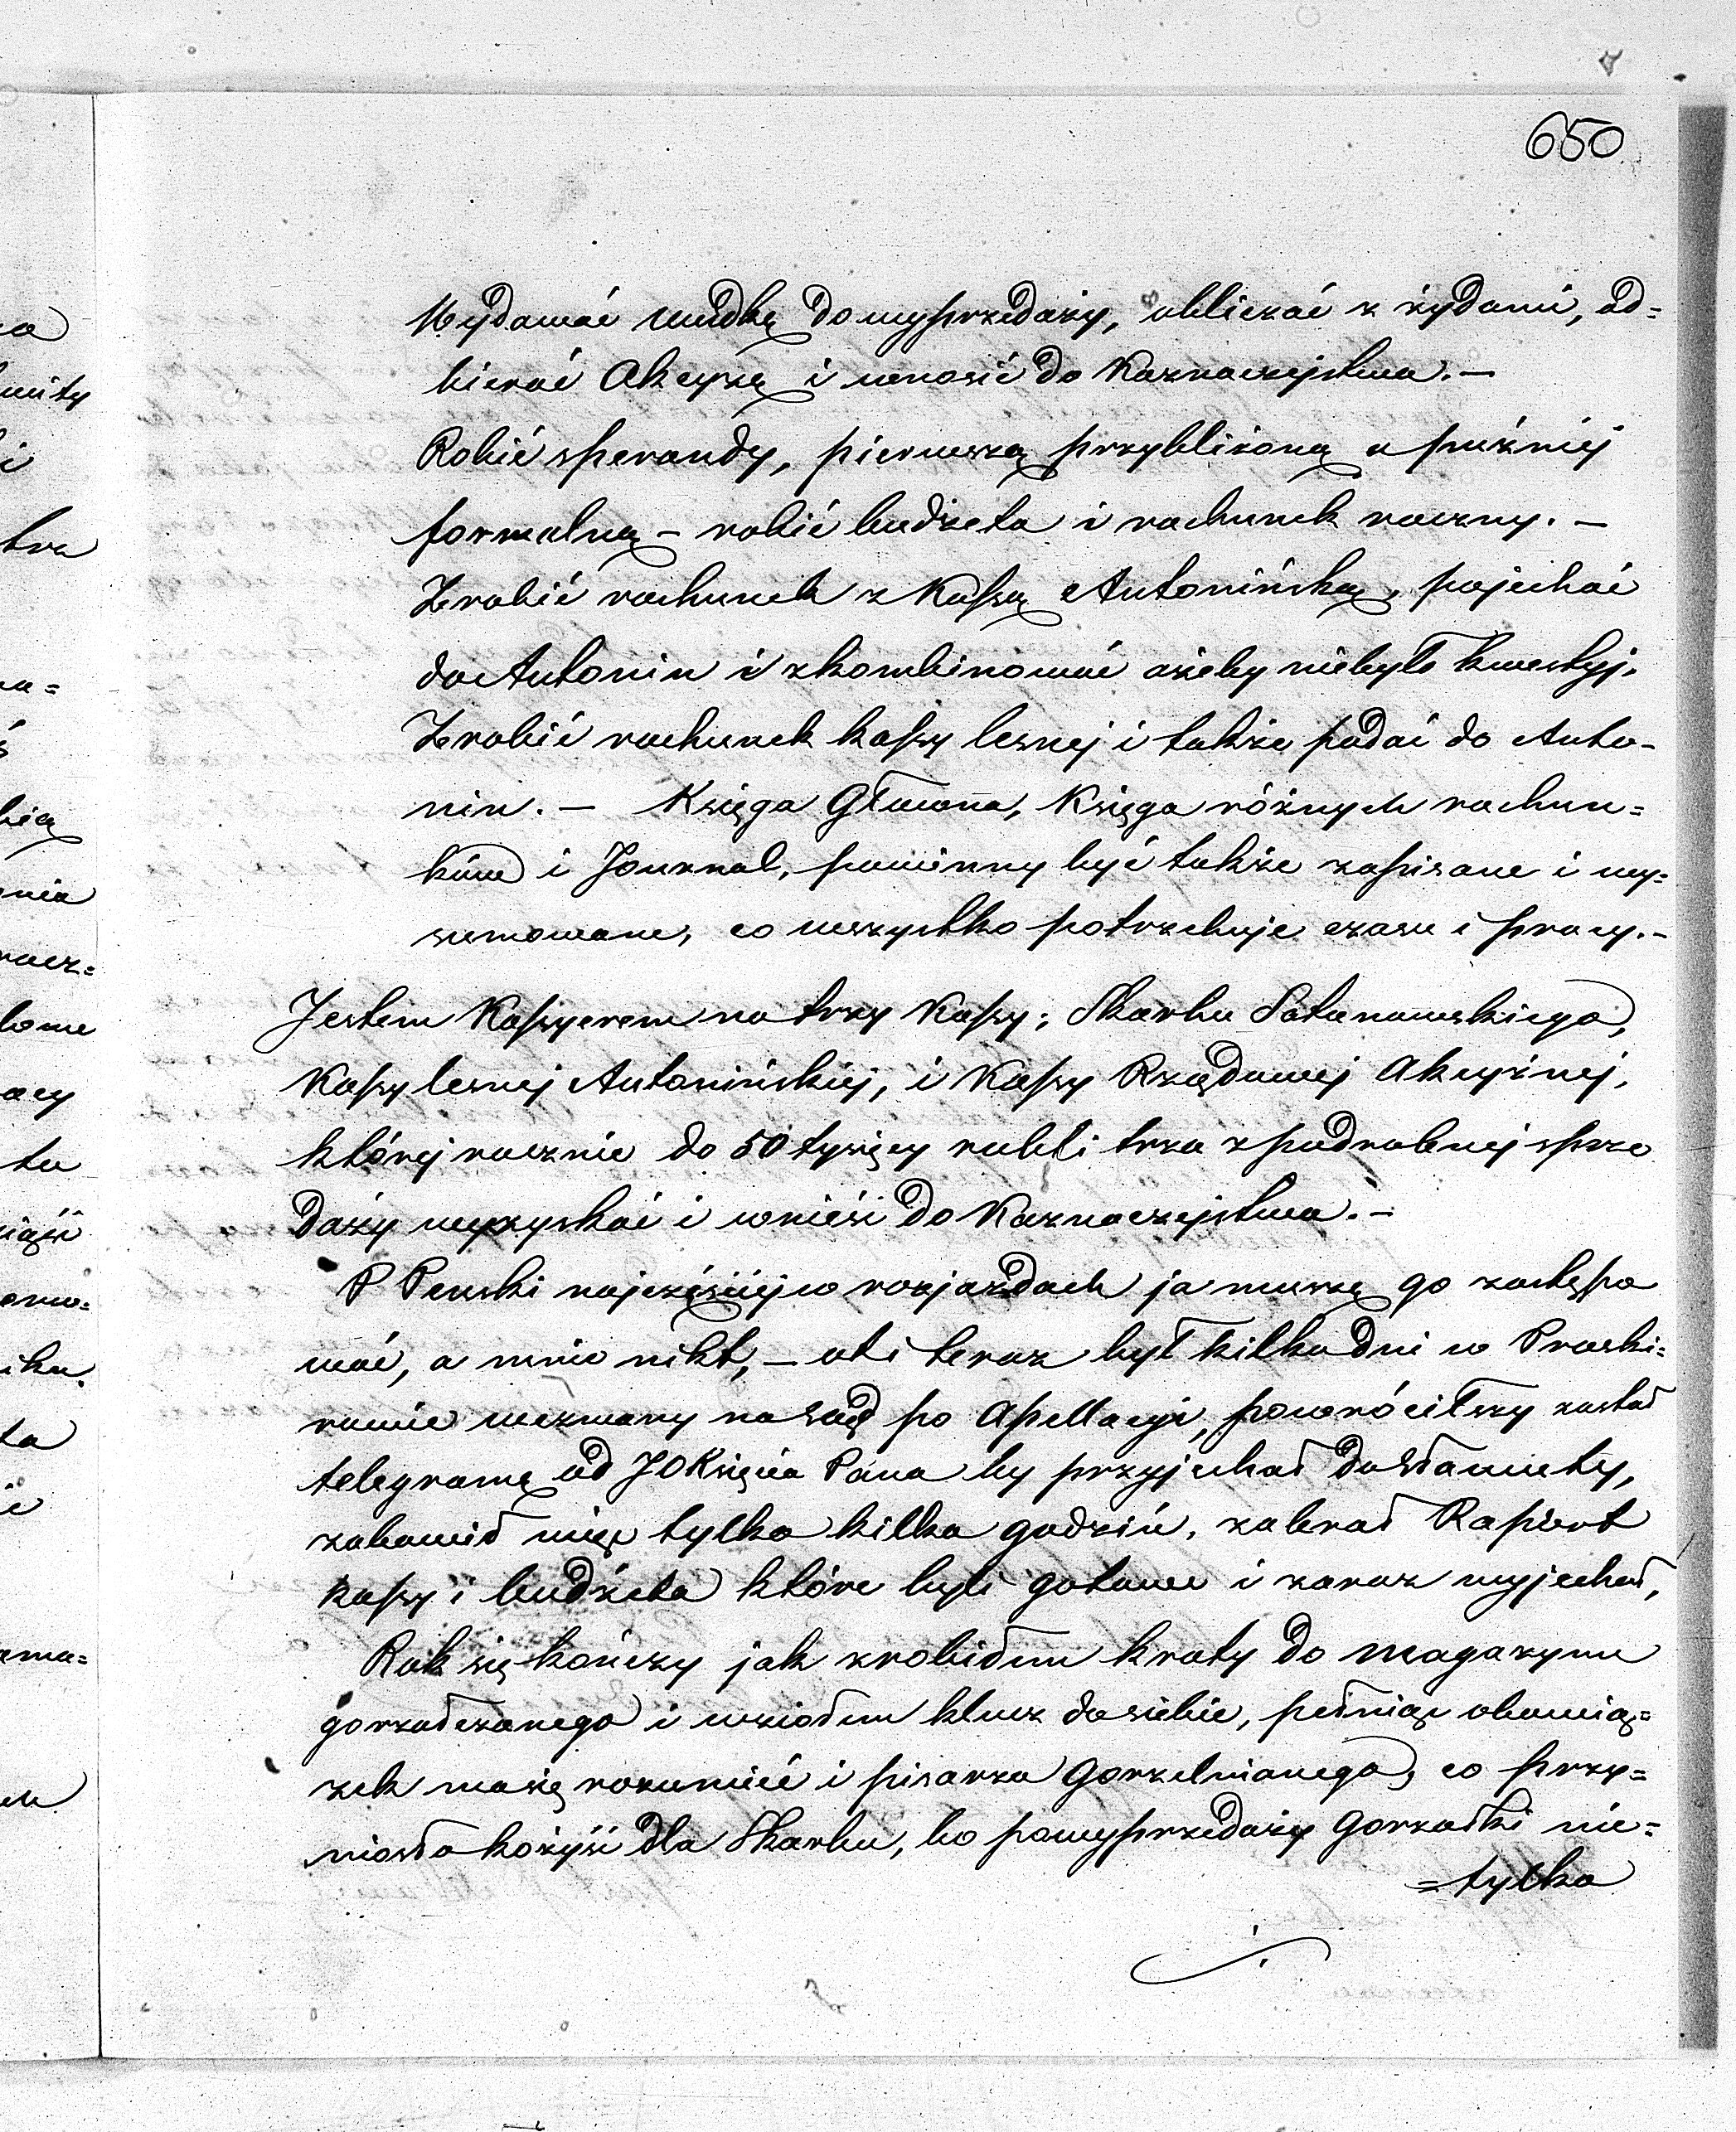 650
Wydawać wudkę do wyprzedaży, obliczać z żydami, od=
bierać Akcyzę i wnosić do Kaznaczejstwa. —
Robić sperandy, pierwszą przybliżoną a puźniej
formalną — robić budżeta i rachunek roczny. —
Zrobić rachunek z Kassą Antonińską, pojechać
do Antonin i zkombinować ażeby niebyło kwestyj.
Zrobić rachunek kassy lesnej i także podać do Anto-
nin. — Księga Głowna, Księga różnych rachun=
ków i Journal, powinny być także zapisane i wy=
sumowane, co wszystko potrzebuje czasu i pracy. —
Jestem Kassyerem na trzy Kassy; Skarbu Satanowskiego,
Kassy lesnej Antonińskiej, i Kassy Rządowej Akcyźnej,
której rocznie do 50 tysięcy rubli trza z podrobnej sprze
daży wyzyskać i wnieść do Kaznaczejstwa. —
P Penski najczęściej w rozjazdach ja muszę go zastępo
wać, a mnie nikt, — oto i teraz był kilka dni w Proski=
rowie wezwany na sąd po Apellacyi, powróciłszy zastał
telegramę od JO Księcia Pana by przyjechał do Sławuty,
zabawił więc tylko kilka godzin, zabrał Raport
kassy i budżeta które byli gotowe i zaraz wyjechał,
Rok się kończy jak zrobiłem kraty do magazynu
gorzałczanego i wziołem klucz do siebie, pełniąc obowią=
zek ma się rozumieć i pisarza Gorzelnianego, co przy=
niosło kożyść dla Skarbu, bo po wyprzedaży Gorzałki nie=
=tylko